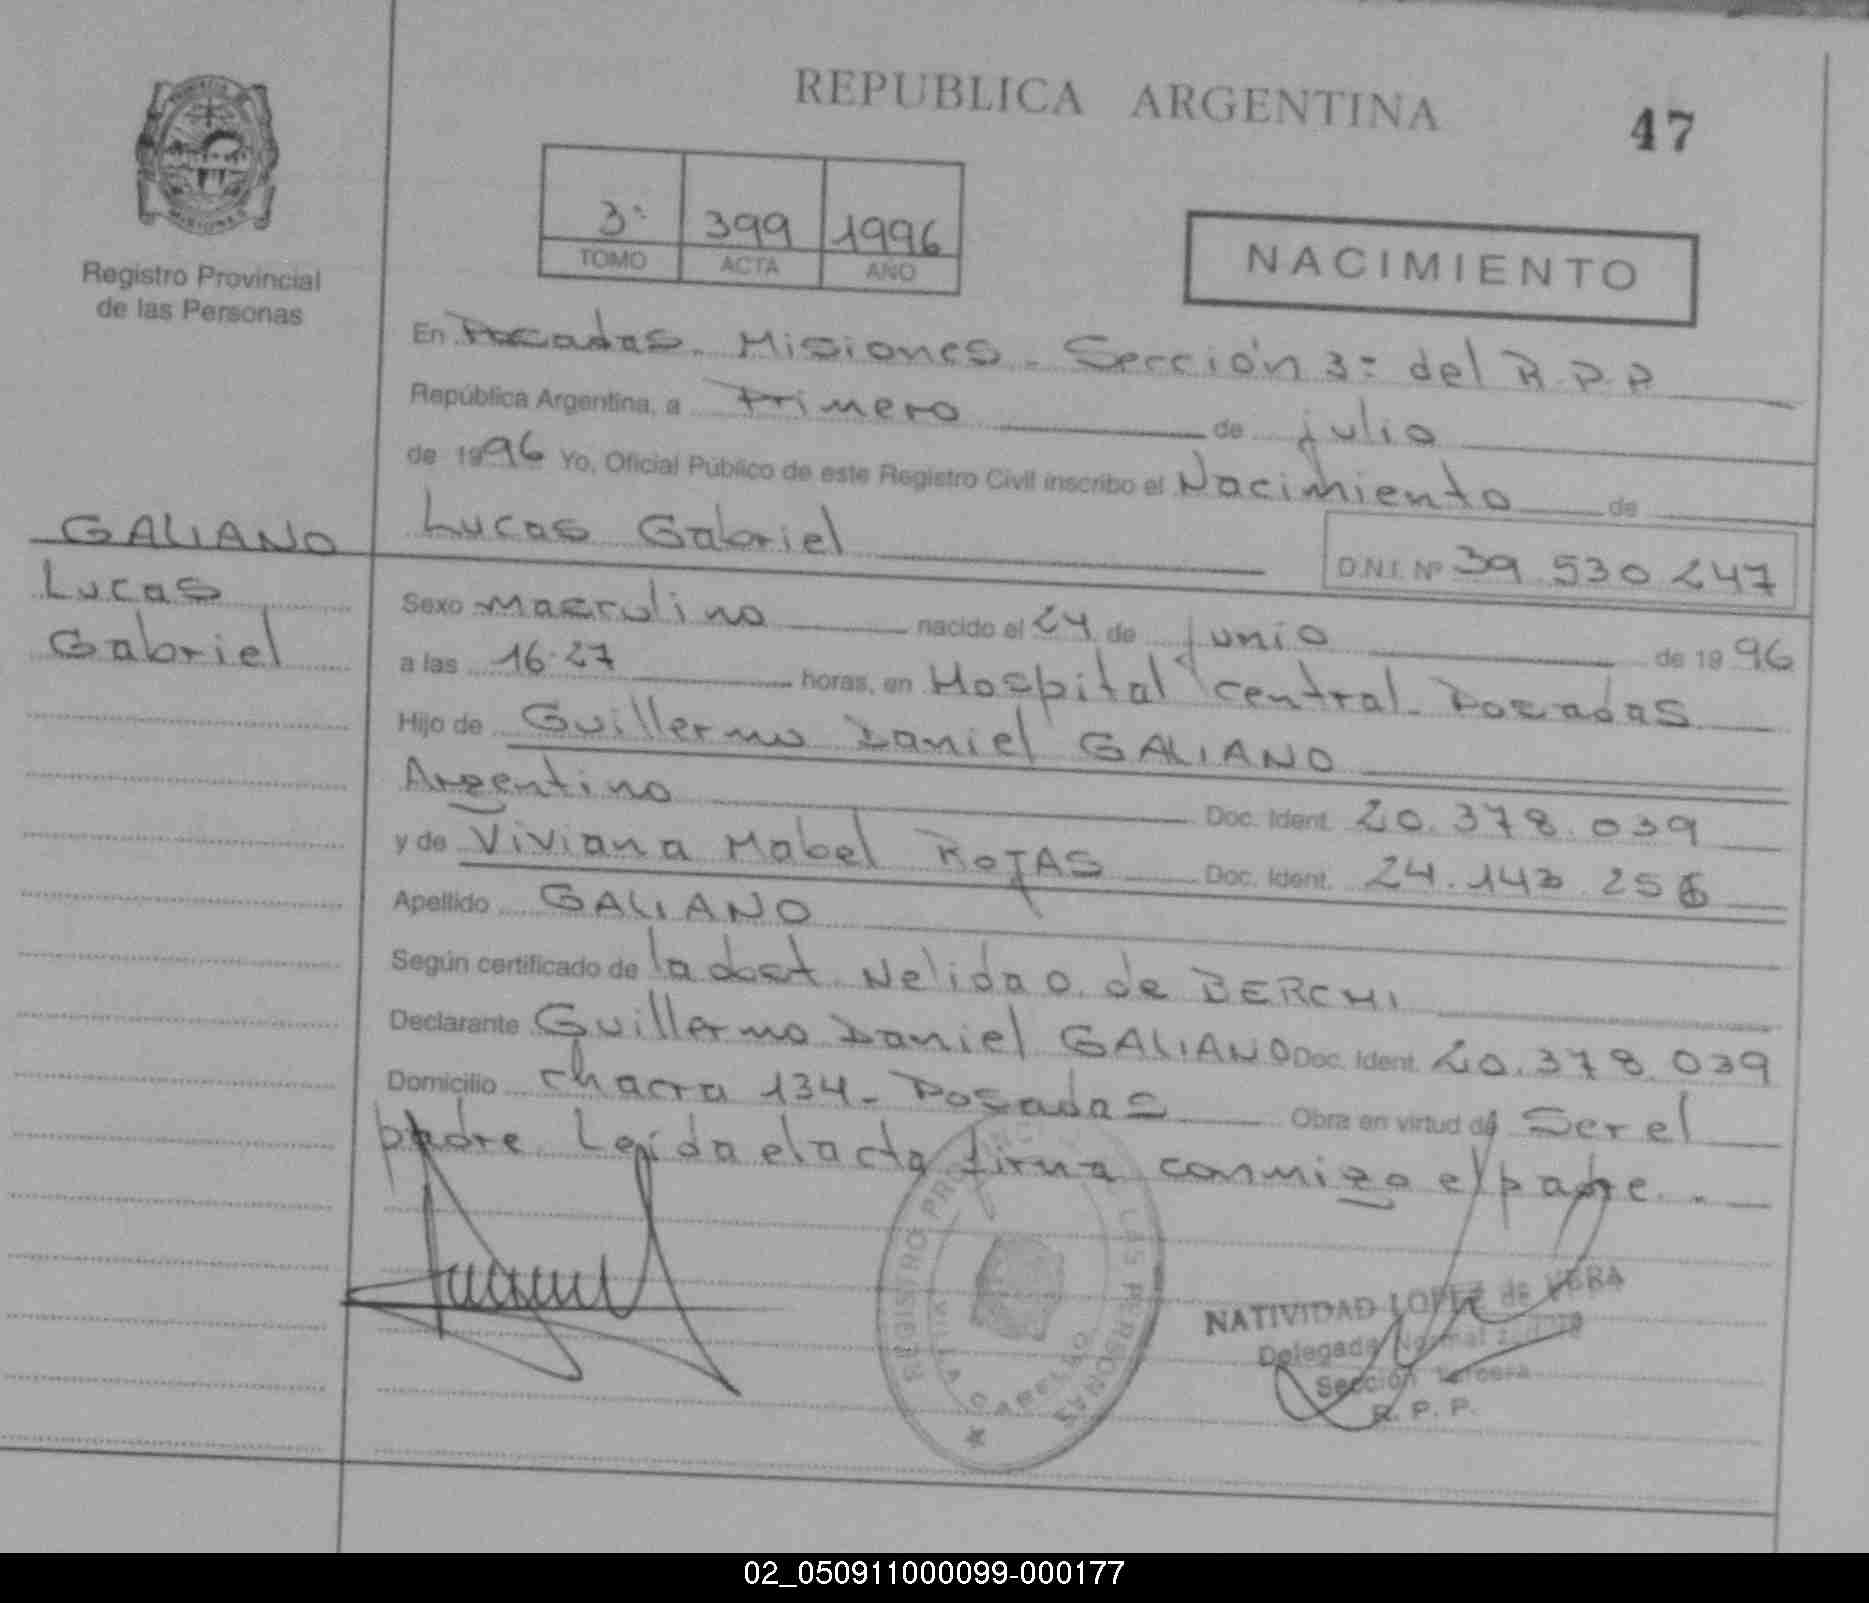 REPUBLICA ARGENTINA
47
Registro Provincial
de las Personas
3º 399 1996
TOMO ACTA AÑO
NACIMIENTO
En Posadas. Misiones - Sección 3º del R.P.P
República Argentina, a Primero de julio
de 1996 Yo, Oficial Público de este Registro Civil inscribo el Nacimiento de
Lucas Gabriel D.N.I. Nº 39.530.247
GALIANO
Lucas
Gabriel
Sexo Masculino nacido el 24 de junio de 1996
a las 16.27 horas, en Hospital central - Posadas
Hijo de Guillermo Daniel GALIANO
Argentino Doc. Ident. 20.378.039
y de Viviana Mabel ROJAS Doc. Ident. 24.143.256
Apellido GALIANO
Según certificado de la dost. Nelida O. de BERCHI
Declarante Guillermo Daniel GALIANO Doc. Ident. 20.378.039
Domicilio chacra 134 - Posadas Obra en virtud de Ser el
padre. Leída el acta firma conmigo el padre. -
REGISTRO PROVINCIAL LAS PERSONAS
VILLA CABELLO
NATIVIDAD LOPEZ de VERA
Delegada Normal
Sección Tercera
R. P. P.
02_050911000099-000177